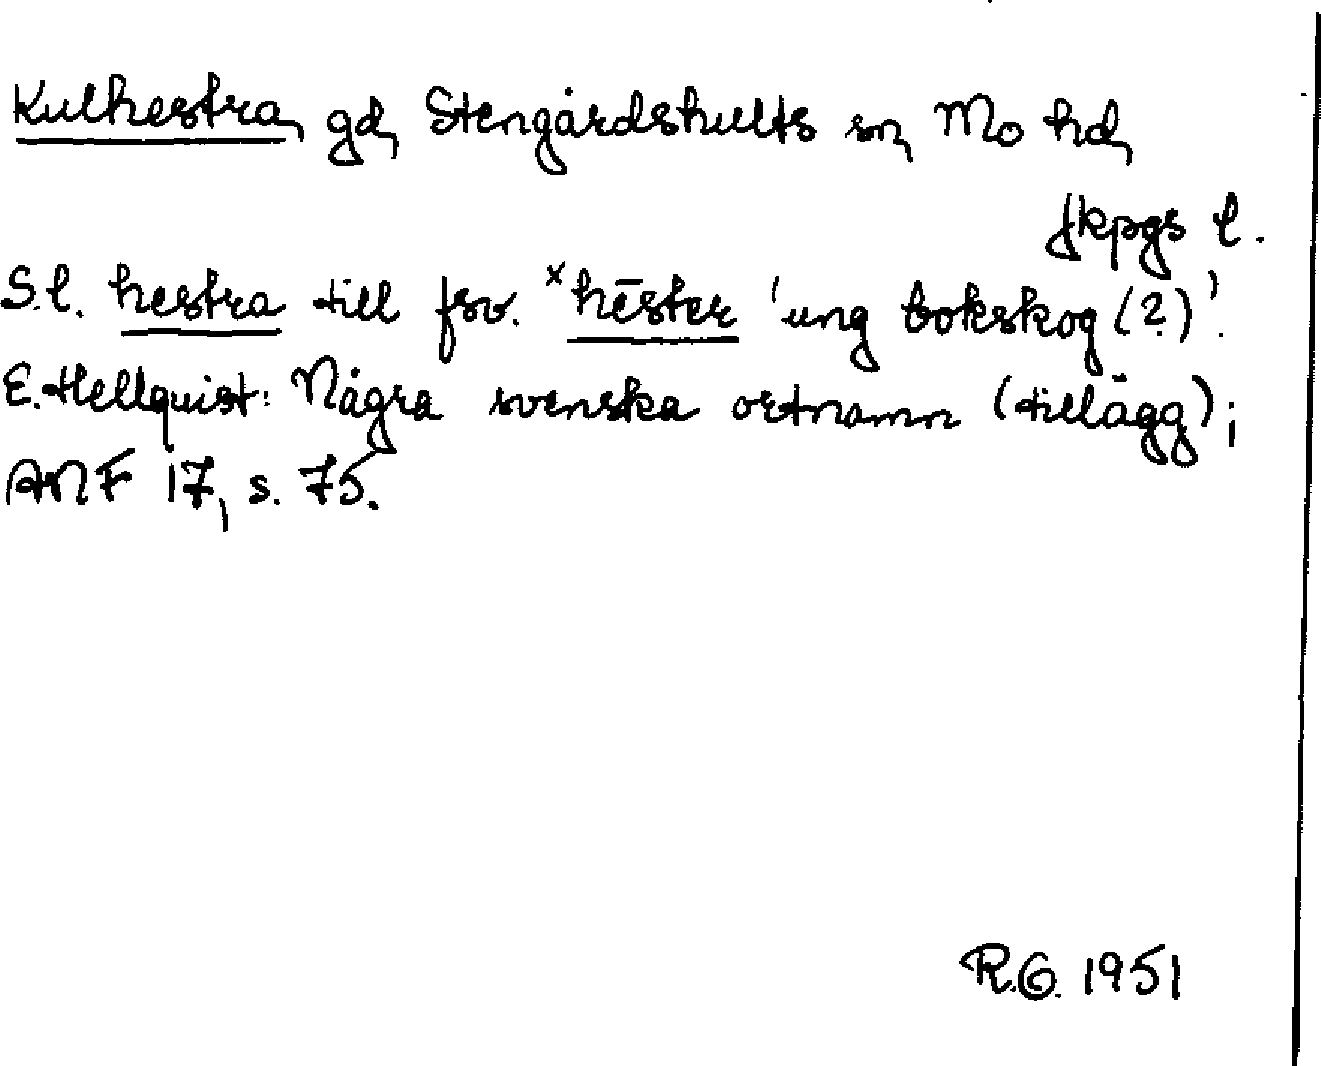 Kulhestra, gd, Stengårdshults sn, Mo hd,
Jkpgs l.
S.l. hestra till fsv. ˣhēster 'ung bokskog (?)'.
E. Hellquist: Några svenska ortnamn (tillägg);
ANF 17, s. 75.
R.G. 1951